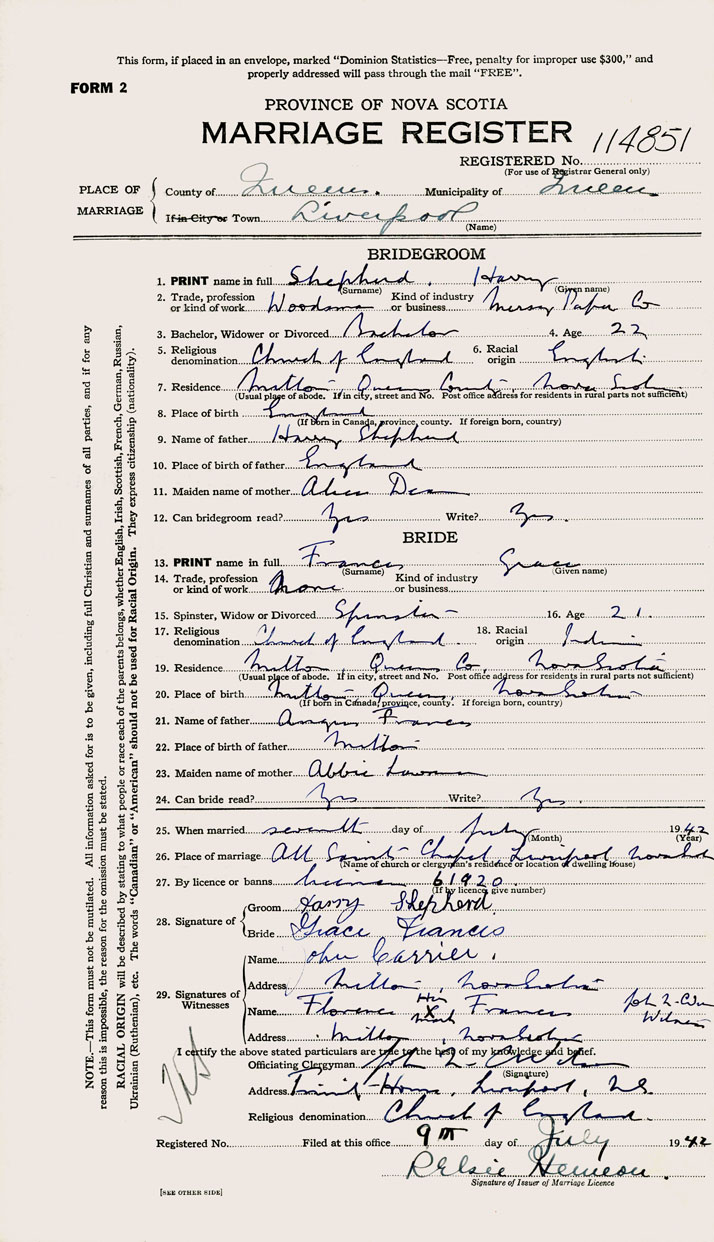 This form, if placed in an envelope, marked "Dominion Statistics—Free, penalty for improper use $300," and
properly addressed will pass through the mail "FREE".
FORM 2
PROVINCE OF NOVA SCOTIA
MARRIAGE REGISTER
114851
REGISTERED No.
(For use of Registrar General only)
PLACE OF MARRIAGE
County of Queens. Municipality of Queens
If in City or Town Liverpool
(Name)
BRIDEGROOM
1. PRINT name in full Shepherd, Harry
(Surname) (Given name)
2. Trade, profession or kind of work Woodsman Kind of industry or business Mersey Paper Co
3. Bachelor, Widower or Divorced Bachelor 4. Age 22
5. Religious denomination Church of England 6. Racial origin English
7. Residence Milton, Queens County, Nova Scotia
(Usual place of abode. If in city, street and No. Post office address for residents in rural parts not sufficient)
8. Place of birth England
(If born in Canada, province, county. If foreign born, country)
9. Name of father Harry Shepherd
10. Place of birth of father England
11. Maiden name of mother Alice Dean
12. Can bridegroom read? Yes Write? Yes.
BRIDE
13. PRINT name in full Francis Grace
(Surname) (Given name)
14. Trade, profession or kind of work None Kind of industry or business
15. Spinster, Widow or Divorced Spinster 16. Age 21.
17. Religious denomination Church of England. 18. Racial origin Indian
19. Residence Milton, Queens Co, Nova Scotia
(Usual place of abode. If in city, street and No. Post office address for residents in rural parts not sufficient)
20. Place of birth Milton Queens, Nova Scotia
(If born in Canada, province, county. If foreign born, country)
21. Name of father Angus Francis
22. Place of birth of father Milton
23. Maiden name of mother Abbie
24. Can bride read? Yes Write? Yes.
25. When married seventh day of July 1942
(Month) (Year)
26. Place of marriage All Saints Chapel Liverpool Nova Scotia
(Name of church or clergyman's residence or location of dwelling house)
27. By licence or banns license 61920
(If by licence, give number)
28. Signature of
Groom Harry Shepherd.
Bride Grace Francis
29. Signatures of Witnesses
Name John Carrier.
Address Milton, Nova Scotia
Name Florence His X mark Francis John L. Witness
Address Milton, Nova Scotia
I certify the above stated particulars are true to the best of my knowledge and belief.
Officiating Clergyman John L.
(Signature)
Address Trinity Home, Liverpool, N.S.
Religious denomination Church of England.
Registered No. Filed at this office 9th day of July 1942
R Elsie Hemeon.
Signature of Issuer of Marriage Licence
[SEE OTHER SIDE]
NOTE.—This form must not be mutilated. All information asked for is to be given, including full Christian and surnames of all parties, and if for any
reason this is impossible, the reason for the omission must be stated.
RACIAL ORIGIN will be described by stating to what people or race each of the parents belongs, whether English, Irish, Scottish, French, German, Russian,
Ukrainian (Ruthenian), etc. The words "Canadian" or "American" should not be used for Racial Origin. They express citizenship (nationality).